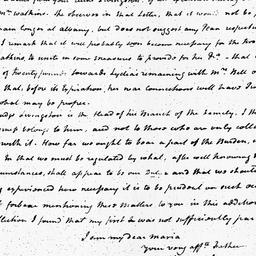 Mr. Watkins. He observes in that Letter, that it would not be
main longer at albany, but does not suggest any Plan respecting
I remark that it will probably soon become necessary for the two
atkins, to unite in some measures to provide for her — that a
of twenty pounds towards Lydia's remaining with Mrs. Bell o
that, before its Expiration, her near connections will have
what may be proper.
udge Livingston is the Head of his Branch of the Family. I th
belongs to him, and not to those who are only colla
with it. How far we ought to bear a part of the Burden,
In that we must be regulated by what, after well knowing
cumstances, shall appear to be our Duty, and that we shoul
experienced how necessary it is to be prudent on such
forbear mentioning these Matters to you in this addition
flection I found that my first was not sufficiently par
I am my dear Maria
your very affte. Father